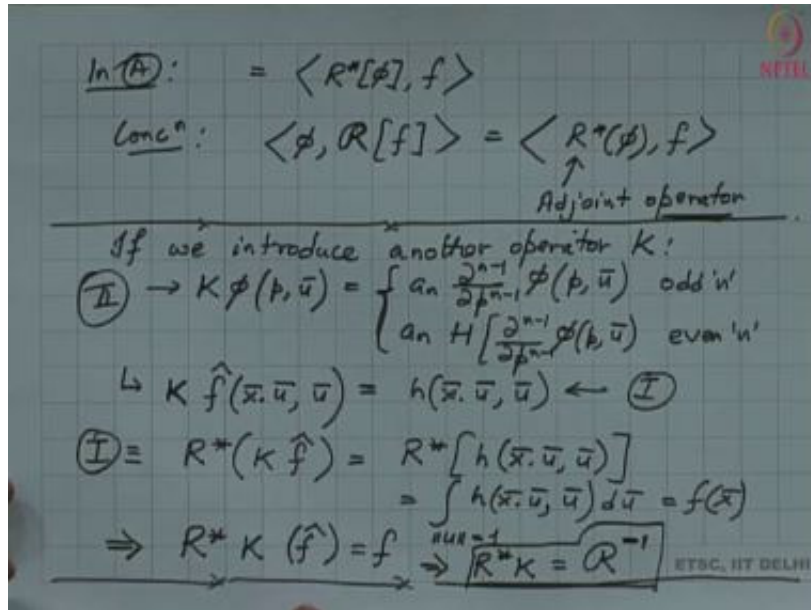 In Ⓐ: = < R*[φ], f >
NPTEL
Concⁿ: < φ, R[f] > = < R*(φ), f >
↑
Adjoint operator
If we introduce another operator K:
Ⅱ → K φ(p, ū) = { aₙ ∂ⁿ⁻¹/∂pⁿ⁻¹ φ(p, ū) odd 'n'
aₙ H [ ∂ⁿ⁻¹/∂pⁿ⁻¹ φ(p, ū) even 'n'
↳ K f̂(x̄.ū, ū) = h(x̄.ū, ū) ← Ⅰ
Ⅰ ≡ R*(K f̂) = R*[h(x̄.ū, ū)]
= ∫ h(x̄.ū, ū) dū = f(x̄)
||u||=1
⇒ R* K (f̂) = f ⇒ R*K = R⁻¹
ETSC, IIT DELHI